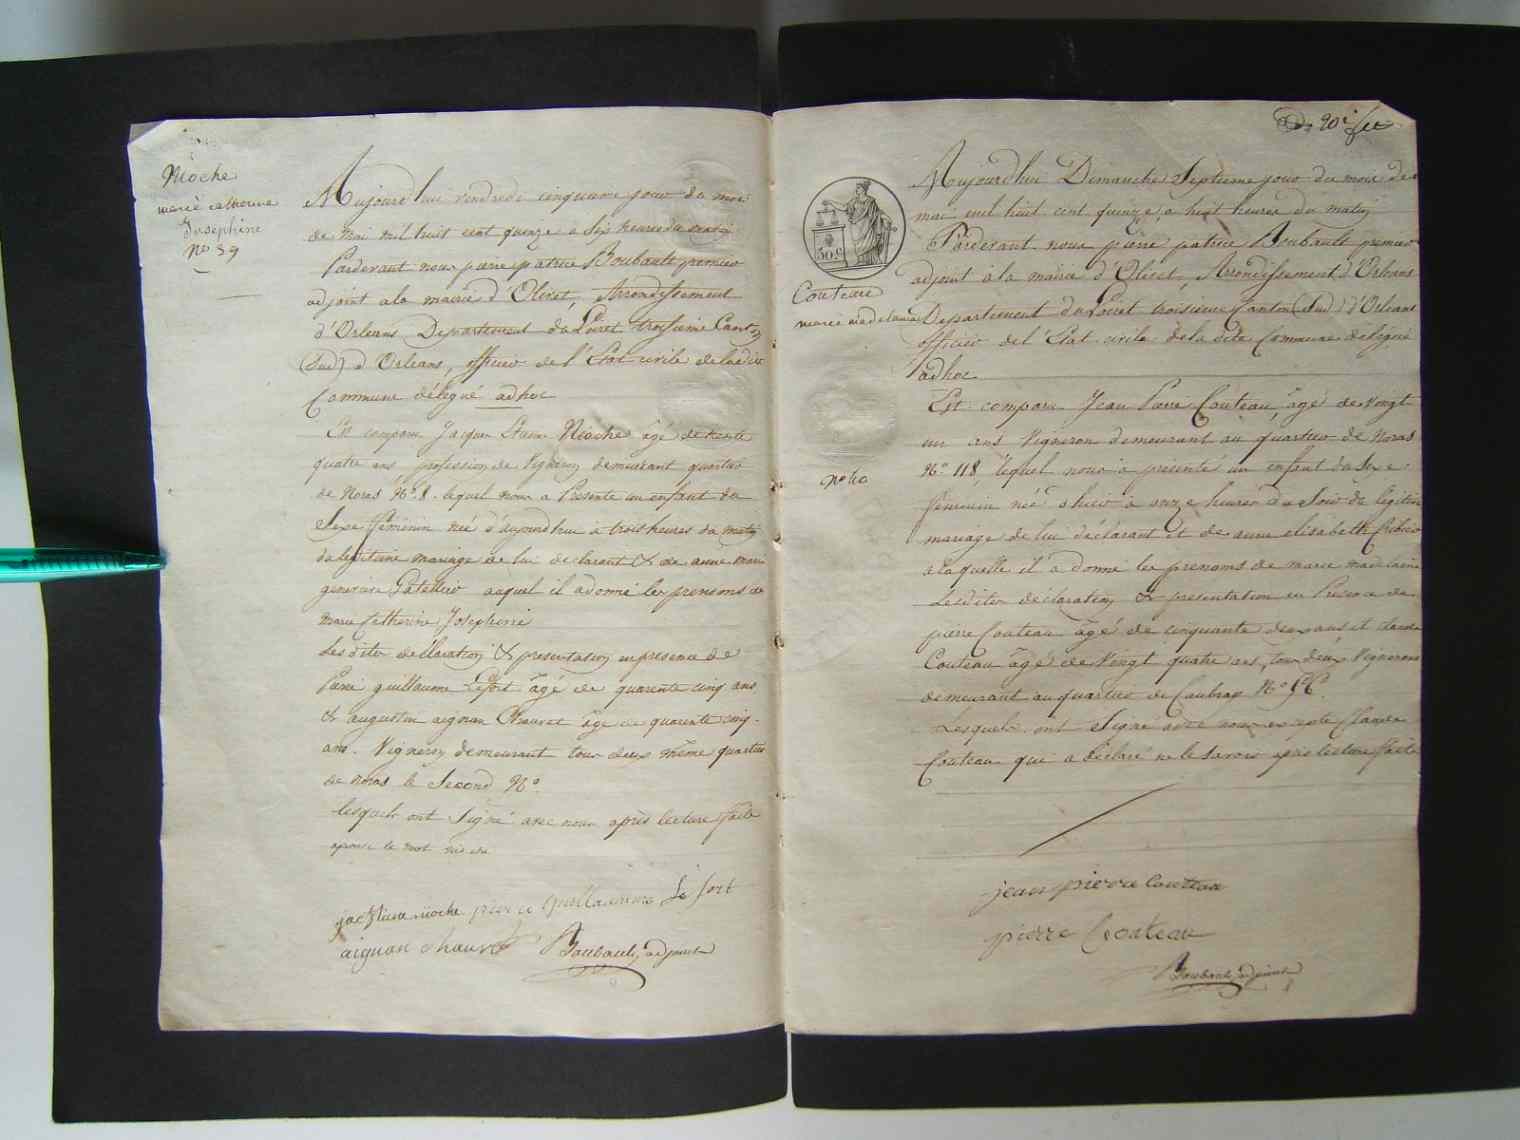 Nioche
marie catherine
Josephine
No 39
Aujourd'hui vendredi cinquieme jour du mois
de Mai mil huit cent quinze a Six heures du matin
Pardevant nous pierre patrice Boubault premier
adjoint a la mairie d'Olivet, Arrondissement
d'Orleans Departement du Loiret troisieme Canton
(Sud) d'Orleans, officier de l'Etat civile de la dite
Commune délégué adhoc
Est comparu Jacques Etienne Nioche âgé de trente
quatre ans profession de Vigneron demeurant quartier
de Noras No 8. lequel nous a Présenté un enfant du
Sexe féminin née d'aujourdhui à trois heures du matin
du legitime mariage de lui declarant & de anne marie
genevieve Patellier auquel il a donné les prenoms de
Marie Catherine Josephine
Les dites declaration & presentation en presence de
Pierre guillaume Lefort âgé de quarente cinq ans
& augustin aignan Chauvet âgé de quarente cinq
ans. Vigneron demeurant tous deux même quartier
de Noras le Second No
lesquels ont Signé avec nous après lecture faite
le mot
jac Etiene nioche pierre guillaume Le fort
aignan chauvet Boubault adjoint
20e
Aujourd'hui Dimanche Septieme jour du mois de
mai mil huit cent quinze, a huit heures du matin
Pardevant nous pierre patrice Boubault premier
adjoint à la mairie d'Olivet, Arrondissement d'Orleans
Departement du Loiret troisieme Canton (Sud) d'Orleans
officier de l'Etat civile de la dite Commune délégué
adhoc
50 c
Couteau
marie madelaine
No 40
Est comparu Jean Pierre Couteau, âgé de Vingt
un ans Vigneron demeurant au quartier de Noras
No 118, lequel nous à presenté un enfant du Sexe
féminin née d'hier à onze heures du Soir de legitime
mariage de lui déclarant et de anne elisabeth
a laquelle il à donné les prenoms de marie madelaine
Lesdites declaration & presentation en Présence de
pierre Couteau âgé de cinquante deux ans et claude
Couteau âgé de Vingt quatre ans, tous deux Vignerons
demeurant au quartier de Caubray No
Lesquels ont Signé avec nous excepté Claude
Couteau qui a déclaré ne le Savoir après lecture faite
jean pierre Couteau
pierre Couteau
Boubault adjoint